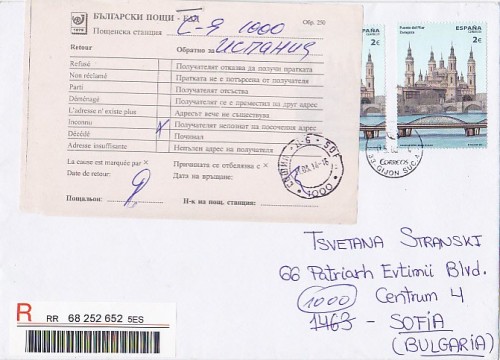 БЪЛГАРСКИ ПОЩИ - ЕАД
Обр. 250
1879
Пощенска станция С-Я 1000
Retour Обратно за ИСПАНИЯ
Refusé Получателят отказва да получи пратката
Non réclamé Пратката не е потърсена от получателя
Parti Получателят отсъства
Déménagé Получателят се е преместил на друг адрес
L'adresse n'existe plus Адресът вече не съществува
Inconnu Получателят непознат на посочения адрес
Décédé Починал
Adresse insuffisante Непълен адрес на получателя
La cause est marquée par × Причината се отбелязва с ×
Date de retour: Дата на връщане:
Пощальон: Н-к на пощ. станция:
1000
ESPAÑA
2€
Puente del Pilar
Zaragoza
ESPAÑA
2€
CORREOS
33 GIJON SUC.
TSVETANA STRANSKI
66 Patriarh Evtimii Blvd.
1000 Centrum 4
1463 - SOFIA
(BULGARIA)
R
RR 68 252 652 5ES